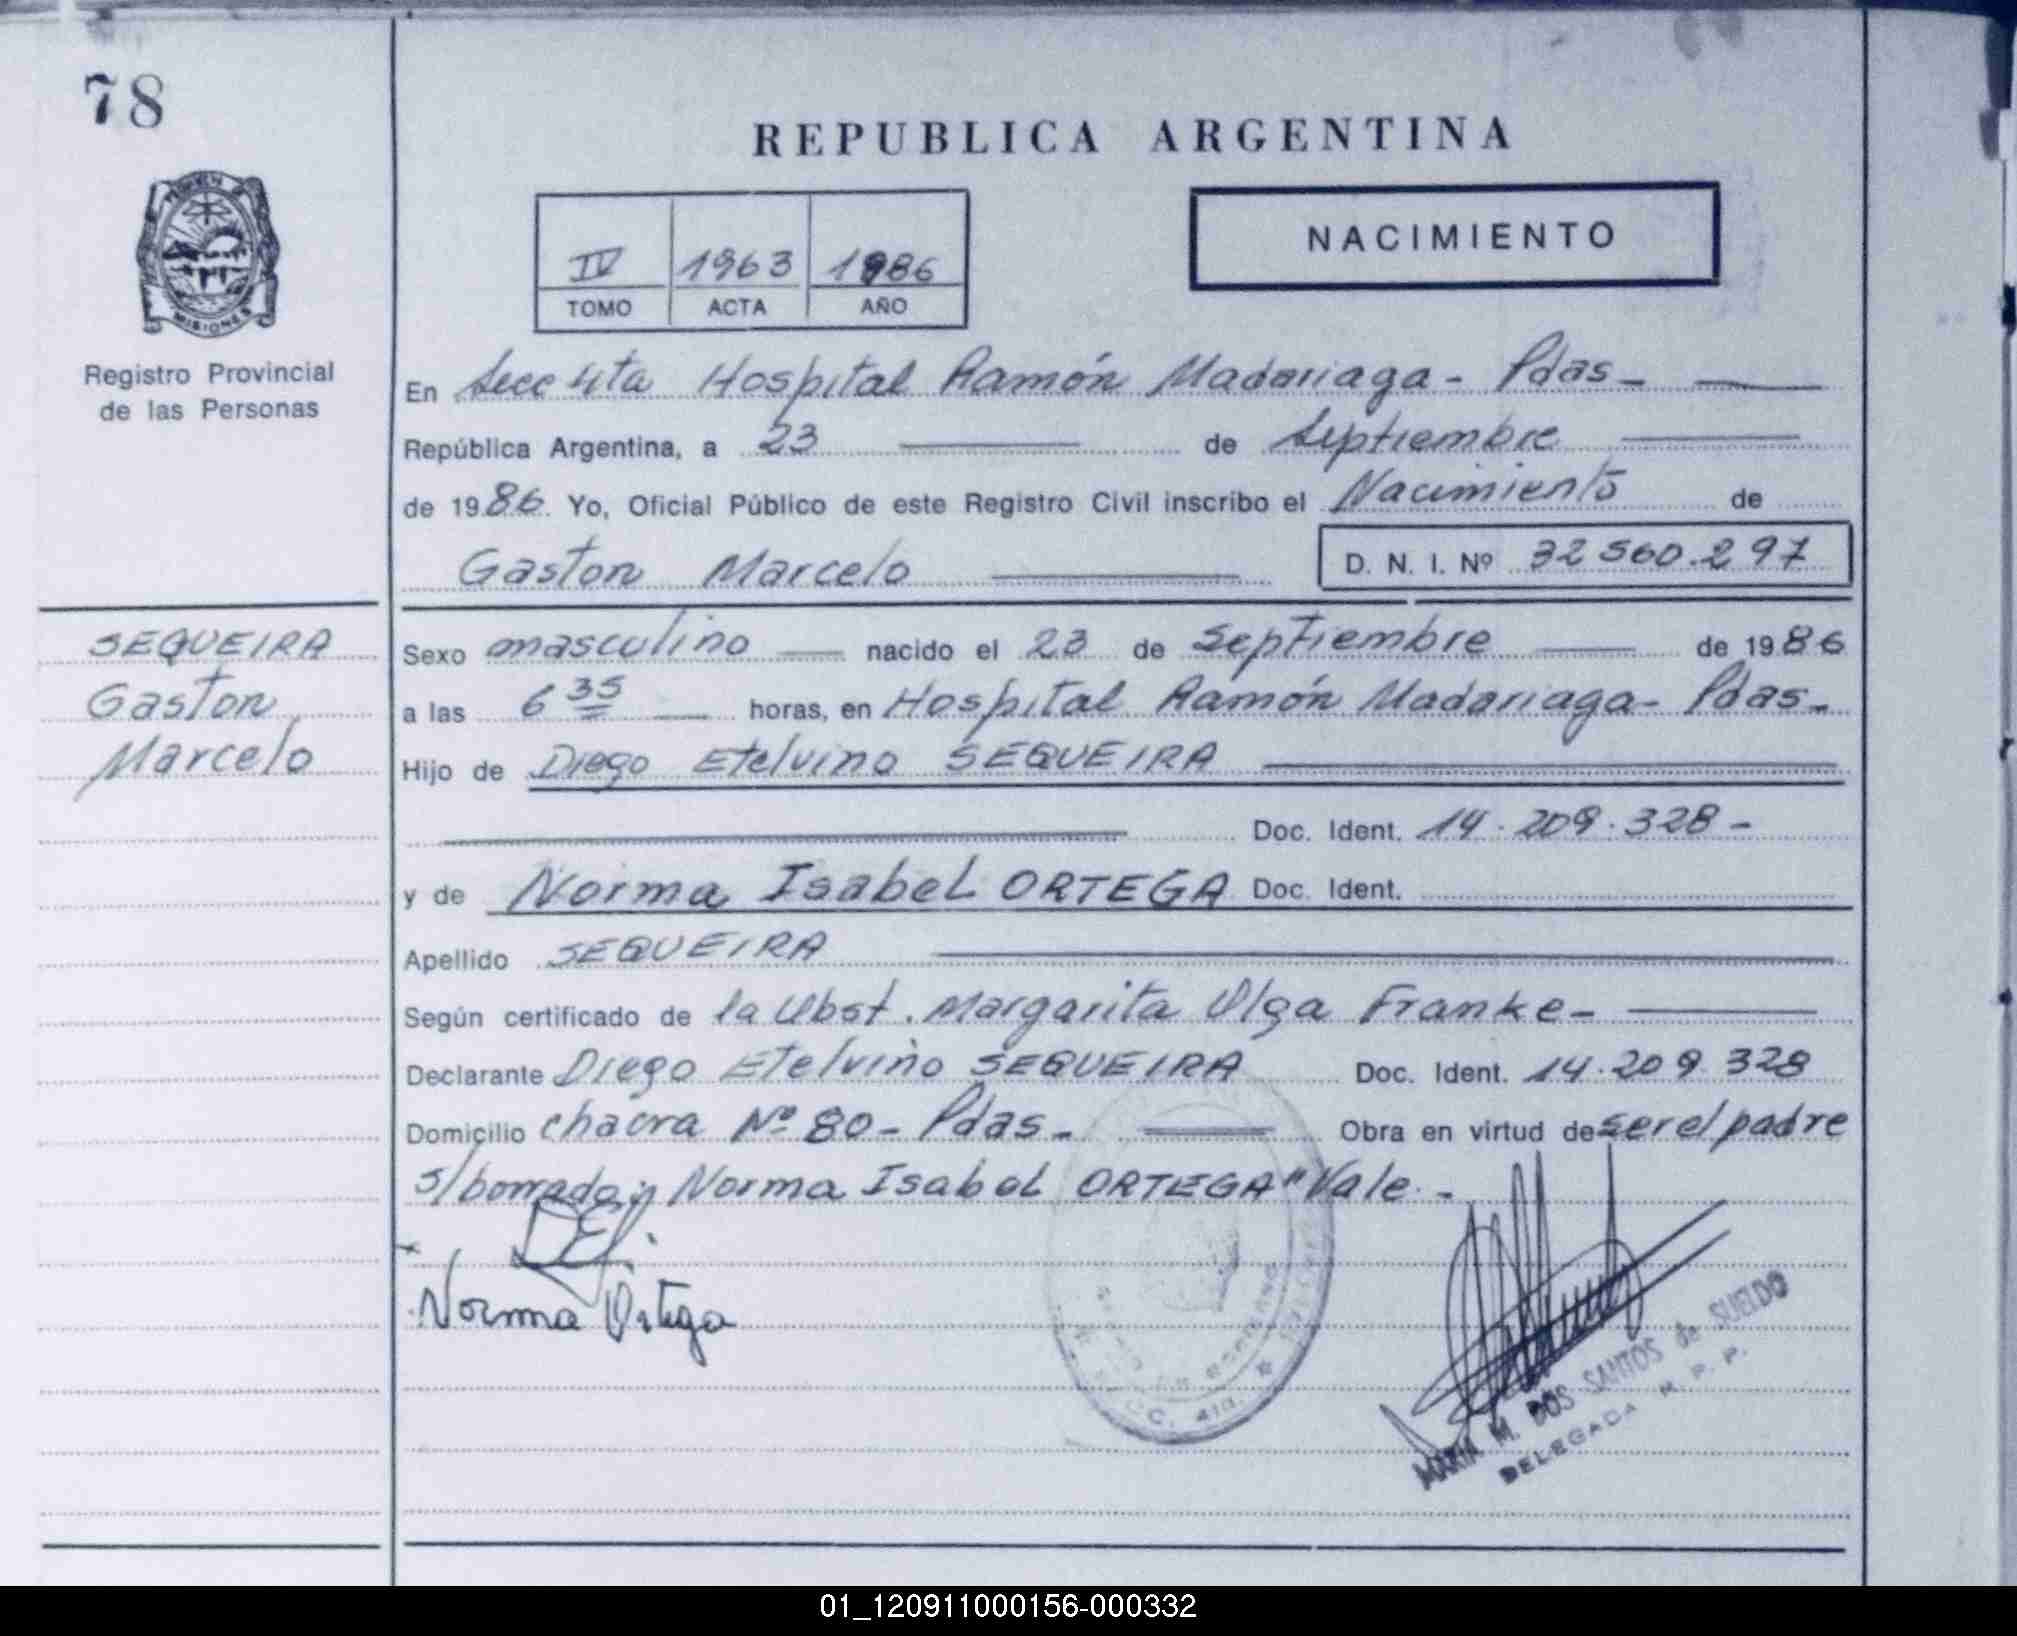 78
REPUBLICA ARGENTINA
MISIONES
Registro Provincial
de las Personas
IV 1963 1986
TOMO ACTA AÑO
NACIMIENTO
En Secc 4ta Hospital Ramón Madariaga - Pdas -
República Argentina, a 23 de Septiembre
de 1986. Yo, Oficial Público de este Registro Civil inscribo el Nacimiento de
Gaston Marcelo D. N. I. Nº 32 560.297
SEQUEIRA
Gaston
Marcelo
Sexo masculino nacido el 23 de Septiembre de 1986
a las 6 35 horas, en Hospital Ramón Madariaga - Pdas -
Hijo de Diego Etelvino SEQUEIRA
Doc. Ident. 14.209.328 -
y de Norma Isabel ORTEGA Doc. Ident.
Apellido SEQUEIRA
Según certificado de la Obst. Margarita Olga Franke -
Declarante Diego Etelvino SEQUEIRA Doc. Ident. 14.209 328
Domicilio chacra Nº 80 - Pdas - Obra en virtud de ser el padre
s/borrado "Norma Isabel ORTEGA" Vale. -
Norma Ortega
MARIA M. DOS SANTOS de SUELDO
DELEGADA R. P. P.
01_120911000156-000332